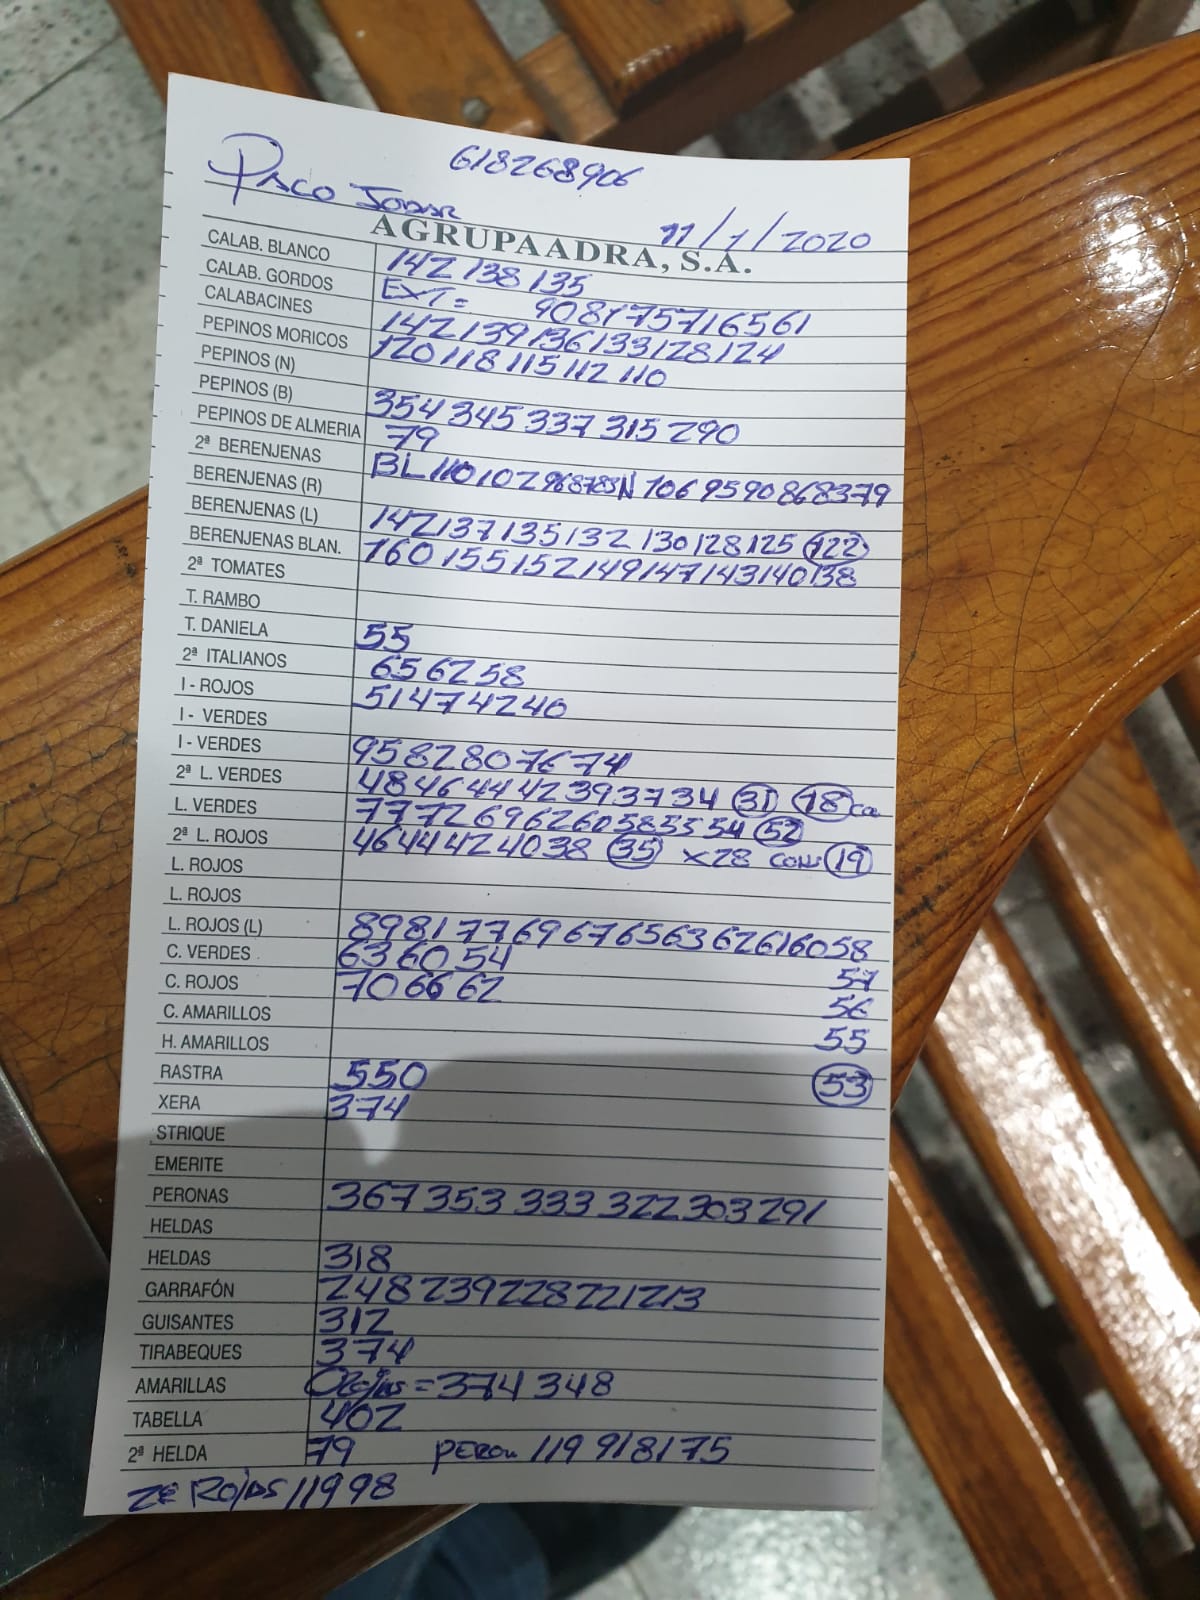 618268906
PACO JODAR
11/1/2020
AGRUPAADRA, S.A.
CALAB. BLANCO 142 138 135
CALAB. GORDOS EXT= 90 81 75 71 65 61
CALABACINES 142 139 136 133 128 124
PEPINOS MORICOS 120 118 115 112 110
PEPINOS (N)
PEPINOS (B) 354 345 337 315 290
PEPINOS DE ALMERIA 79
2ª BERENJENAS BL 110 102 96 87 83 N 106 95 90 86 83 79
BERENJENAS (R)
BERENJENAS (L) 142 137 135 132 130 128 125 122
BERENJENAS BLAN. 160 155 152 149 147 143 140 138
2ª TOMATES
T. RAMBO
T. DANIELA 55
2ª ITALIANOS 65 62 58
I - ROJOS 51 47 42 40
I - VERDES
I - VERDES 95 82 80 76 74
2ª L. VERDES 48 46 44 42 39 37 34 31 18 Ca
L. VERDES 77 72 69 62 60 58 55 54 52
2ª L. ROJOS 46 44 42 40 38 35 x28 CON 19
L. ROJOS
L. ROJOS
L. ROJOS (L) 89 81 77 69 67 65 63 62 61 60 58
C. VERDES 63 60 54 57
C. ROJOS 70 66 62 56
C. AMARILLOS
H. AMARILLOS 55
RASTRA 550 53
XERA 374
STRIQUE
EMERITE
PERONAS 367 353 333 322 303 291
HELDAS
HELDAS 318
GARRAFÓN 248 239 228 221 213
GUISANTES 312
TIRABEQUES 374
AMARILLAS = 374 348
TABELLA 402
2ª HELDA 79 PERON 119 91 81 75
2ª ROJAS 119 98